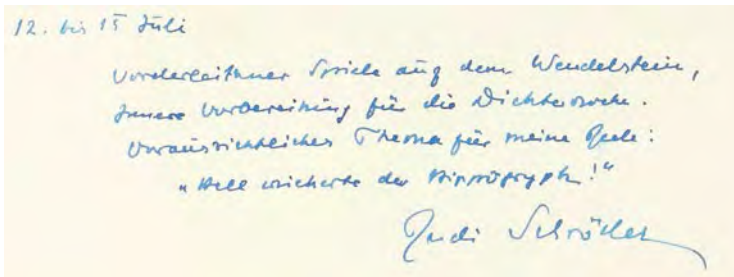 12. bis 15 Juli
Vorderleithner Spiele auf dem Wendelstein,
Innere Vorbereitung für die Dichterwoche.
Voraussichtliches Thema für meine Rede:
"Hell wieherte der Hippogryph!"
Rudi Schröder